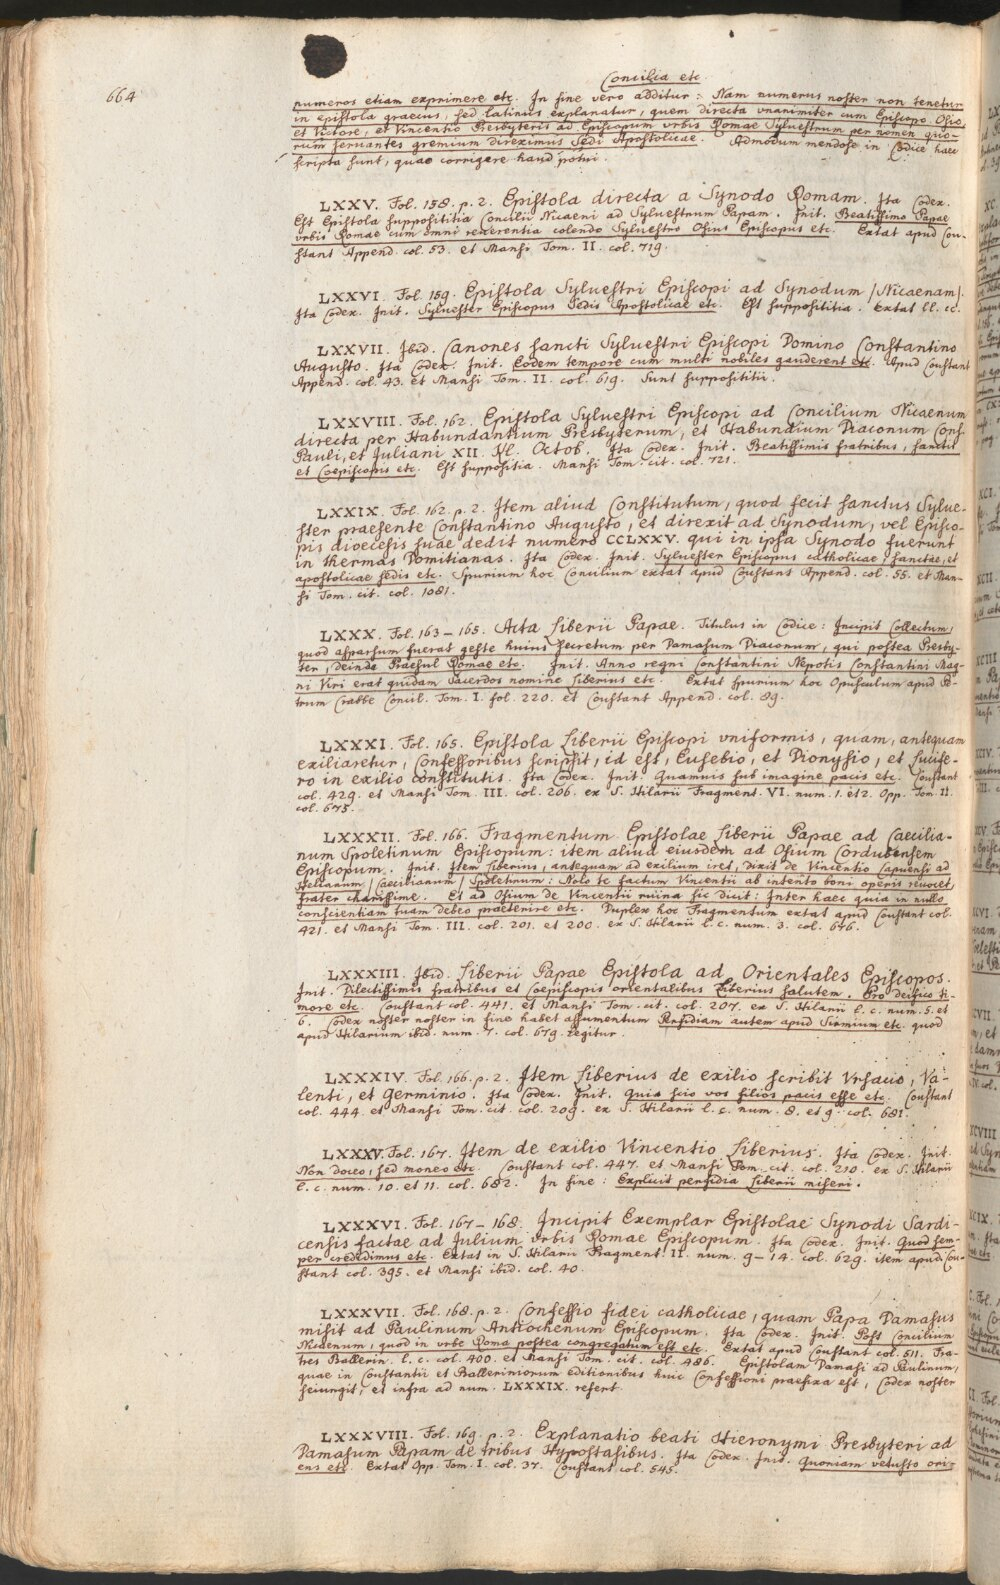 664
Concilia etc.
numeros etiam exprimere etc. In fine vero additur: Nam numerus noster non tenetur
in epistola graecus, sed latinus explanatur, quem directa vnanimiter cum Episcopo Osio,
et Victore, et Vincentio Presbyteris ad Episcopum vrbis Romae Sylvestrum per nomen quo-
rum servantes gremium direximus Sedi Apostolicae. Admodum mendose in Codice haec
scripta sunt, quae corrigere haud potui.
LXXV. Fol. 158. p. 2. Epistola directa a Synodo Romam. Ita Codex.
Est Epistola supposititia Concilii Nicaeni ad Sylvestrum Papam. Init. Beatissimo Papae
vrbis Romae cum omni reverentia colendo Sylvestro Osius Episcopus etc. Extat apud Cou-
stant Append. col. 53. et Mansi Tom. II. col. 719.
LXXVI. Fol. 159. Epistola Sylvestri Episcopi ad Synodum /Nicaenam/.
Ita Codex. Init. Sylvester Episcopus Sedis Apostolicae etc. Est supposititia. Extat ll. cc.
LXXVII. Ibid. Canones sancti Sylvestri Episcopi Domino Constantino
Augusto. Ita Codex. Init. Eodem tempore cum multi nobiles gauderent etc. Apud Coustant
Append. col. 43. et Mansi Tom. II. col. 619. Sunt supposititii.
LXXVIII. Fol. 162. Epistola Sylvestri Episcopi ad Concilium Nicaenum
directa per Habundantium Presbyterum, et Habundium Diaconum Conss.
Pauli, et Juliani XII. Kl. Octob. Ita Codex. Init. Beatissimis fratribus, sanctis
et Coepiscopis etc. Est supposita. Mansi Tom. cit. col. 721.
LXXIX. Fol. 162. p. 2. Item aliud Constitutum, quod fecit sanctus Sylve-
ster praesente Constantino Augusto, et direxit ad Synodum, vel Episco-
pis dioecesis suae dedit numero CCLXXV. qui in ipsa Synodo fuerunt
in thermas Domitianas. Ita Codex. Init. Sylvester Episcopus catholicae sanctae, et
apostolicae sedis etc. Spurium hoc Concilium extat apud Coustant Append. col. 55. et Man-
si Tom. cit. col. 1081.
LXXX. Fol. 163-165. Acta Liberii Papae. Titulus in Codice: Incipit Collectum,
quod asparsum fuerat geste huius secretum per Damasum Diaconum, qui postea Presby-
ter, deinde Praesul Romae etc. Init. Anno regni Constantini Nepotis Constantini Mag-
ni Viri erat quidam sacerdos nomine Liberius etc. Extat spurium hoc Opusculum apud Pe-
trum Crabbe Concil. Tom. I. fol. 220. et Coustant Append. col. 89.
LXXXI. Fol. 165. Epistola Liberii Episcopi vniformis, quam, antequam
exiliaretur, Confessoribus scripsit, id est, Eusebio, et Dionysio, et Lucife-
ro in exilio constitutis. Ita Codex. Init. Quamuis sub imagine pacis etc. Coustant
col. 429. et Mansi Tom. III. col. 206. ex S. Hilarii Fragment. VI. num. 1. et 2. Opp. Tom. II.
col. 675.
LXXXII. Fol. 166. Fragmentum Epistolae Liberii Papae ad Caecilia-
num Spoletinum Episcopum: item aliud eiusdem ad Osium Cordubensem
Episcopum. Init. Item Liberius, antequam ad exilium iret, dixit de Vincentio Capuensi ad
/Caecilianum/ Spoletinum: Nolo te factum Vincentii ab intento boni operis reuocet,
frater charissime. Et ad Osium de Vincentii ruina sic dicit: Inter haec quia in nullo
conscientiam tuam debeo praeterire etc. Duplex hoc Fragmentum extat apud Coustant col.
421. et Mansi Tom. III. col. 201. et 200. ex S. Hilarii l. c. num. 3. col. 676.
LXXXIII. Ibid. Liberii Papae Epistola ad Orientales Episcopos.
Init. Dilectissimis fratribus et Coepiscopis orientalibus Liberius salutem. Pro deifico ti-
more etc. Coustant col. 441. et Mansi Tom. cit. col. 207. ex S. Hilarii l. c. num. 5. et
6. Codex noster noster in fine habet assumentum Perfidiam autem apud Sirmium etc. quod
apud Hilarium ibid. num. 7. col. 679. legitur.
LXXXIV. Fol. 166. p. 2. Item Liberius de exilio scribit Vrsacio, Va-
lenti, et Germinio. Ita Codex. Init. Quia scio vos filios pacis esse etc. Coustant
col. 444. et Mansi Tom. cit. col. 209. ex S. Hilarii l. c. num. 8. et 9. col. 681.
LXXXV. Fol. 167. Item de exilio Vincentio Liberius. Ita Codex. Init.
Non doceo, sed moneo etc. Coustant col. 447. et Mansi Tom. cit. col. 210. ex S. Hilarii
l. c. num. 10. et 11. col. 682. In fine: Explicit perfidia Liberii miseri.
LXXXVI. Fol. 167-168. Incipit Exemplar Epistolae Synodi Sardi-
censis factae ad Julium vrbis Romae Episcopum. Ita Codex. Init. Quod sem-
per credidimus etc. Extat in S. Hilarii Fragment. II. num. 9-14. col. 629. item apud Cou-
stant col. 395. et Mansi ibid. col. 40.
LXXXVII. Fol. 168. p. 2. Confessio fidei catholicae, quam Papa Damasus
misit ad Paulinum Antiochenum Episcopum. Ita Codex. Init. Post Concilium
Nicaenum, quod in vrbe Roma postea congregatum est etc. Extat apud Coustant col. 511. Fra-
tres Ballerin. l. c. col. 400. et Mansi Tom. cit. col. 486. Epistolam Damasi ad Paulinum,
quae in Coustantii et Balleriniorum editionibus huic Confessioni praefixa est, Codex noster
seiungit, et infra ad num. LXXXIX. refert.
LXXXVIII. Fol. 169. p. 2. Explanatio beati Hieronymi Presbyteri ad
Damasum Papam de tribus Hypostasibus. Ita Codex. Init. Quoniam vetusto ori-
ens etc. Extat Opp. Tom. I. col. 37. Coustant col. 545.